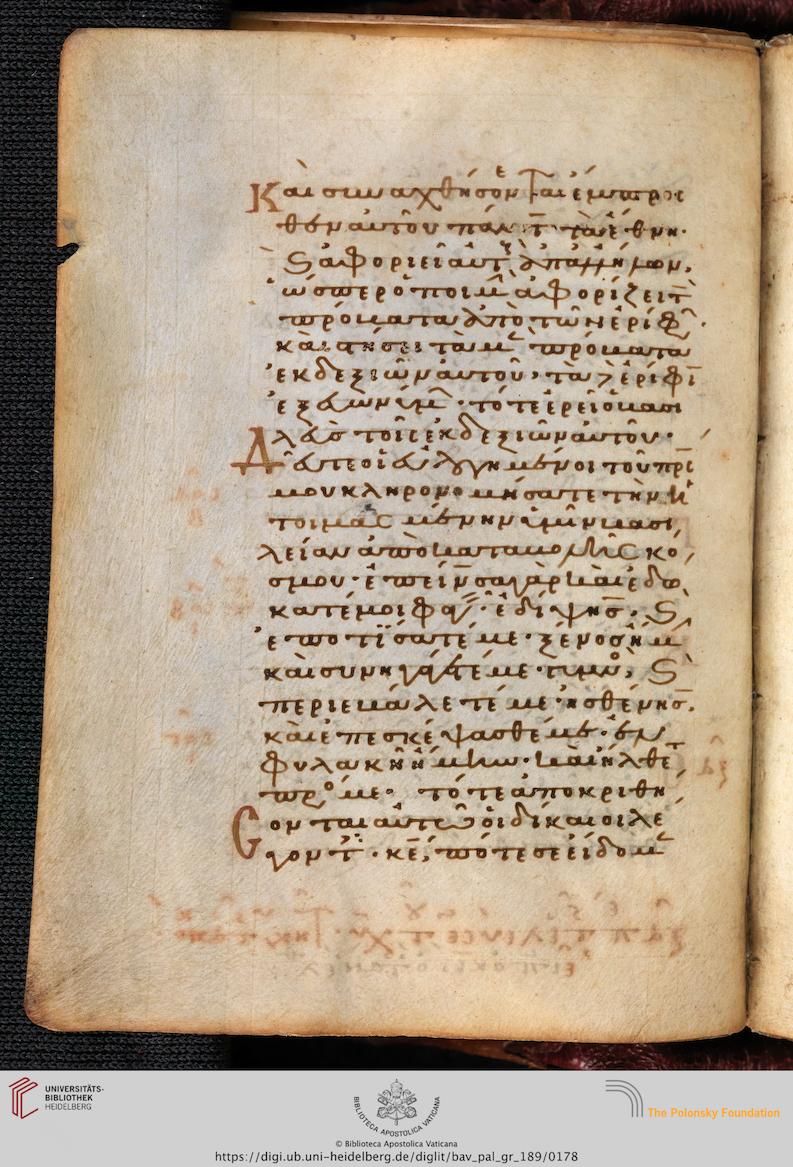 Καὶ συναχθήσονται ἔμπροσ
θεν αὐτοῦ πάντ τὰ ἔθνη.
ϛ ἀφοριεῖ αὐτ ἀπαλλήλων.
ὥσπερ ὁ ποιμ ἀφορίζει τ
πρόβατα ἀπὸ τῶν ἐρίφ.
καὶ στήσει τὰ μ πρόβατα
ἐκ δεξιῶν αὐτοῦ. τὰ δὲ ἐρίφι
ἐξ εὐωνύμ. τότε ἐρεῖ ὁ βασι
λεὺσ τοῖς ἐκ δεξιῶν αὐτοῦ.
Δεῦτε οἱ εὐλογημένοι τοῦ πρι
μου κληρονομήσατε τὴν ἡ
τοιμασμένην ὑμῖν βασι
λείαν ἀπὸ καταβολῆς κό
σμου. ἐπείνσα γὰρ καὶ ἐδώ
κατέ μοι φαγ. ἐδίψησ. ϛ
ἐποτίσατέ με. ξένοσ ἤμ
καὶ συνηγάγετέ με. γυμν, ϛ
περιεβάλετέ με. ἠσθένησ.
καὶ ἐπεσκέψασθέ με. ἐν
φυλακῆ ἤμην. καὶ ἤλθετ
πρό με. τότε ἀποκριθή
σονται αὐτῶ οἱ δίκαιοι λέ
γοντ. κε, πότε σε εἴδομ
UNIVERSITÄTS-
BIBLIOTHEK
HEIDELBERG
BIBLIOTECA APOSTOLICA VATICANA
The Polonsky Foundation
© Biblioteca Apostolica Vaticana
https://digi.ub.uni-heidelberg.de/diglit/bav_pal_gr_189/0178